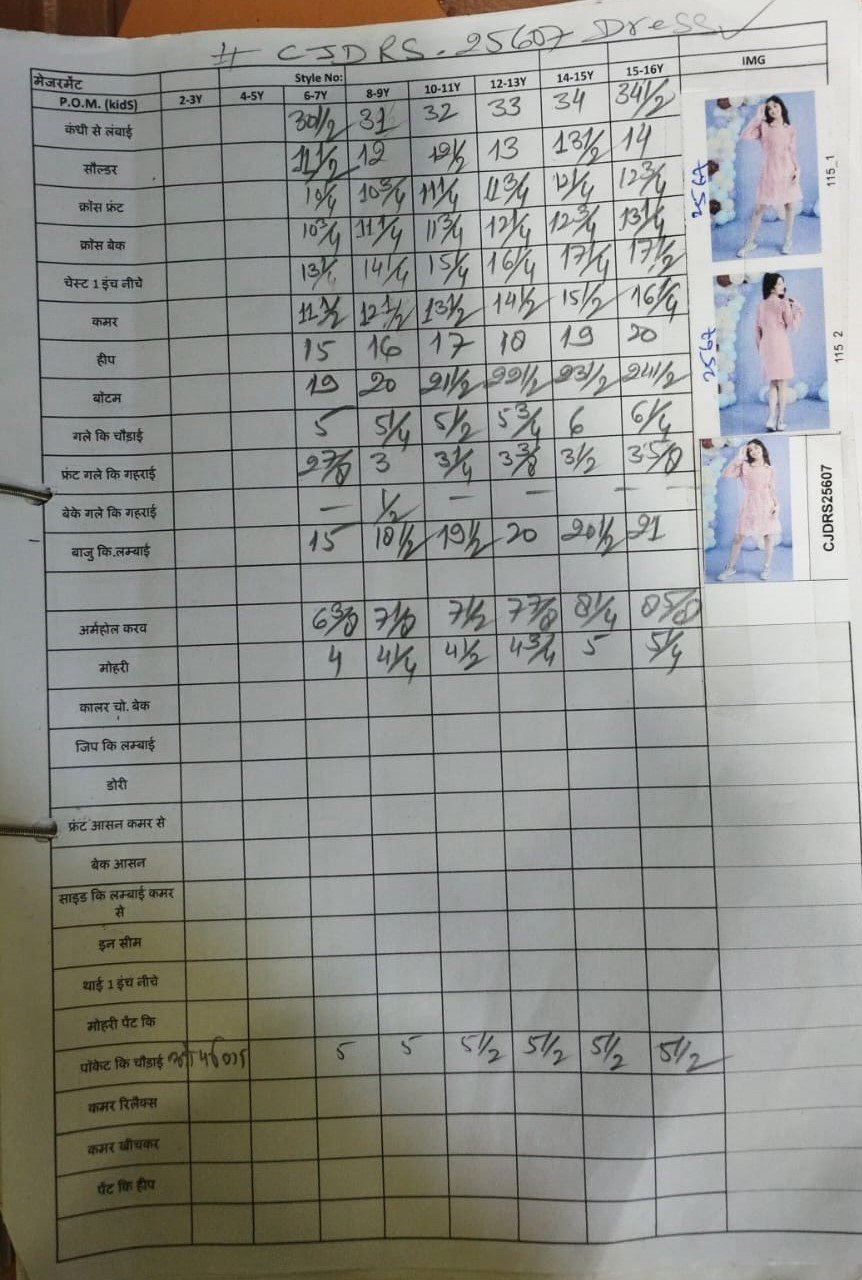 # CJDRS-25607 Dress ✓
मेजरमेंट Style No: IMG
P.O.M. (kidS) 2-3Y 4-5Y 6-7Y 8-9Y 10-11Y 12-13Y 14-15Y 15-16Y
कंधी से लंबाई 30 1/2 31 32 33 34 34 1/2
सौल्डर 11 1/2 12 12 1/2 13 13 1/2 14
क्रॉस फ्रंट 10 1/4 10 3/4 11 1/4 11 3/4 12 1/4 12 3/4
क्रॉस बेक 10 3/4 11 1/4 11 3/4 12 1/4 12 3/4 13 1/4
चेस्ट 1 इंच नीचे 13 1/4 14 1/4 15 1/4 16 1/4 17 1/4 17 1/2
कमर 11 1/2 12 1/2 13 1/2 14 1/2 15 1/2 16 1/4
हीप 15 16 17 18 19 20
बॉटम 19 20 21 1/2 22 1/2 23 1/2 24 1/2
गले कि चौड़ाई 5 5 1/4 5 1/2 5 3/4 6 6 1/4
फ्रंट गले कि गहराई 2 7/8 3 3 1/4 3 3/8 3 1/2 3 5/8
बेके गले कि गहराई — 1/2 — — — —
बाजु कि.लम्बाई 15 18 1/2 19 1/2 20 20 1/2 21
अर्महोल करव 6 3/8 7 1/8 7 1/2 7 7/8 8 1/4 8 5/8
मोहरी 4 4 1/4 4 1/2 4 3/4 5 5 1/4
कालर चो. बेक
जिप कि लम्बाई
डोरी
फ्रंट आसन कमर से
बेक आसन
साइड कि लम्बाई कमर
से
इन सीम
थाई 1 इंच नीचे
मोहरी पैंट कि
पॉकेट कि चौड़ाई 5 5 5 1/2 5 1/2 5 1/2 5 1/2
कमर रिलैक्स
कमर खीचकर
पैंट कि हीप
2567
115_1
2567
115_2
CJDRS25607